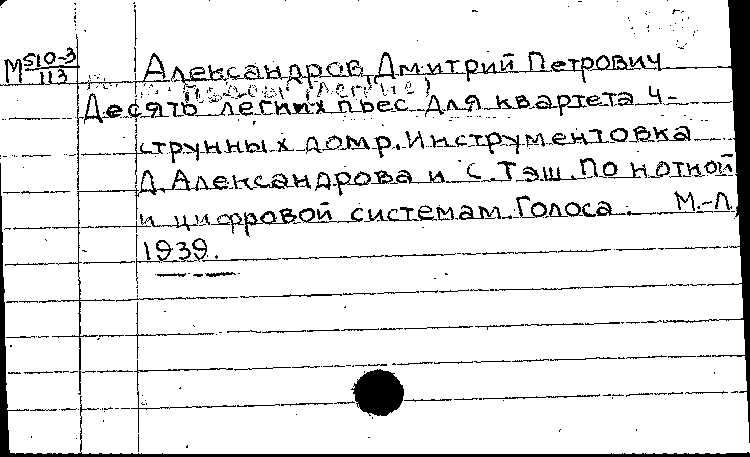 М 510-3/113
Александров, Дмитрий Петрович
Десять легких пьес для квартета 4-
струнных домр. Инструментовка
Д. Александрова и С. Тэш. По нотной
и цифровой системам. Голоса. М.-Л,
1939.